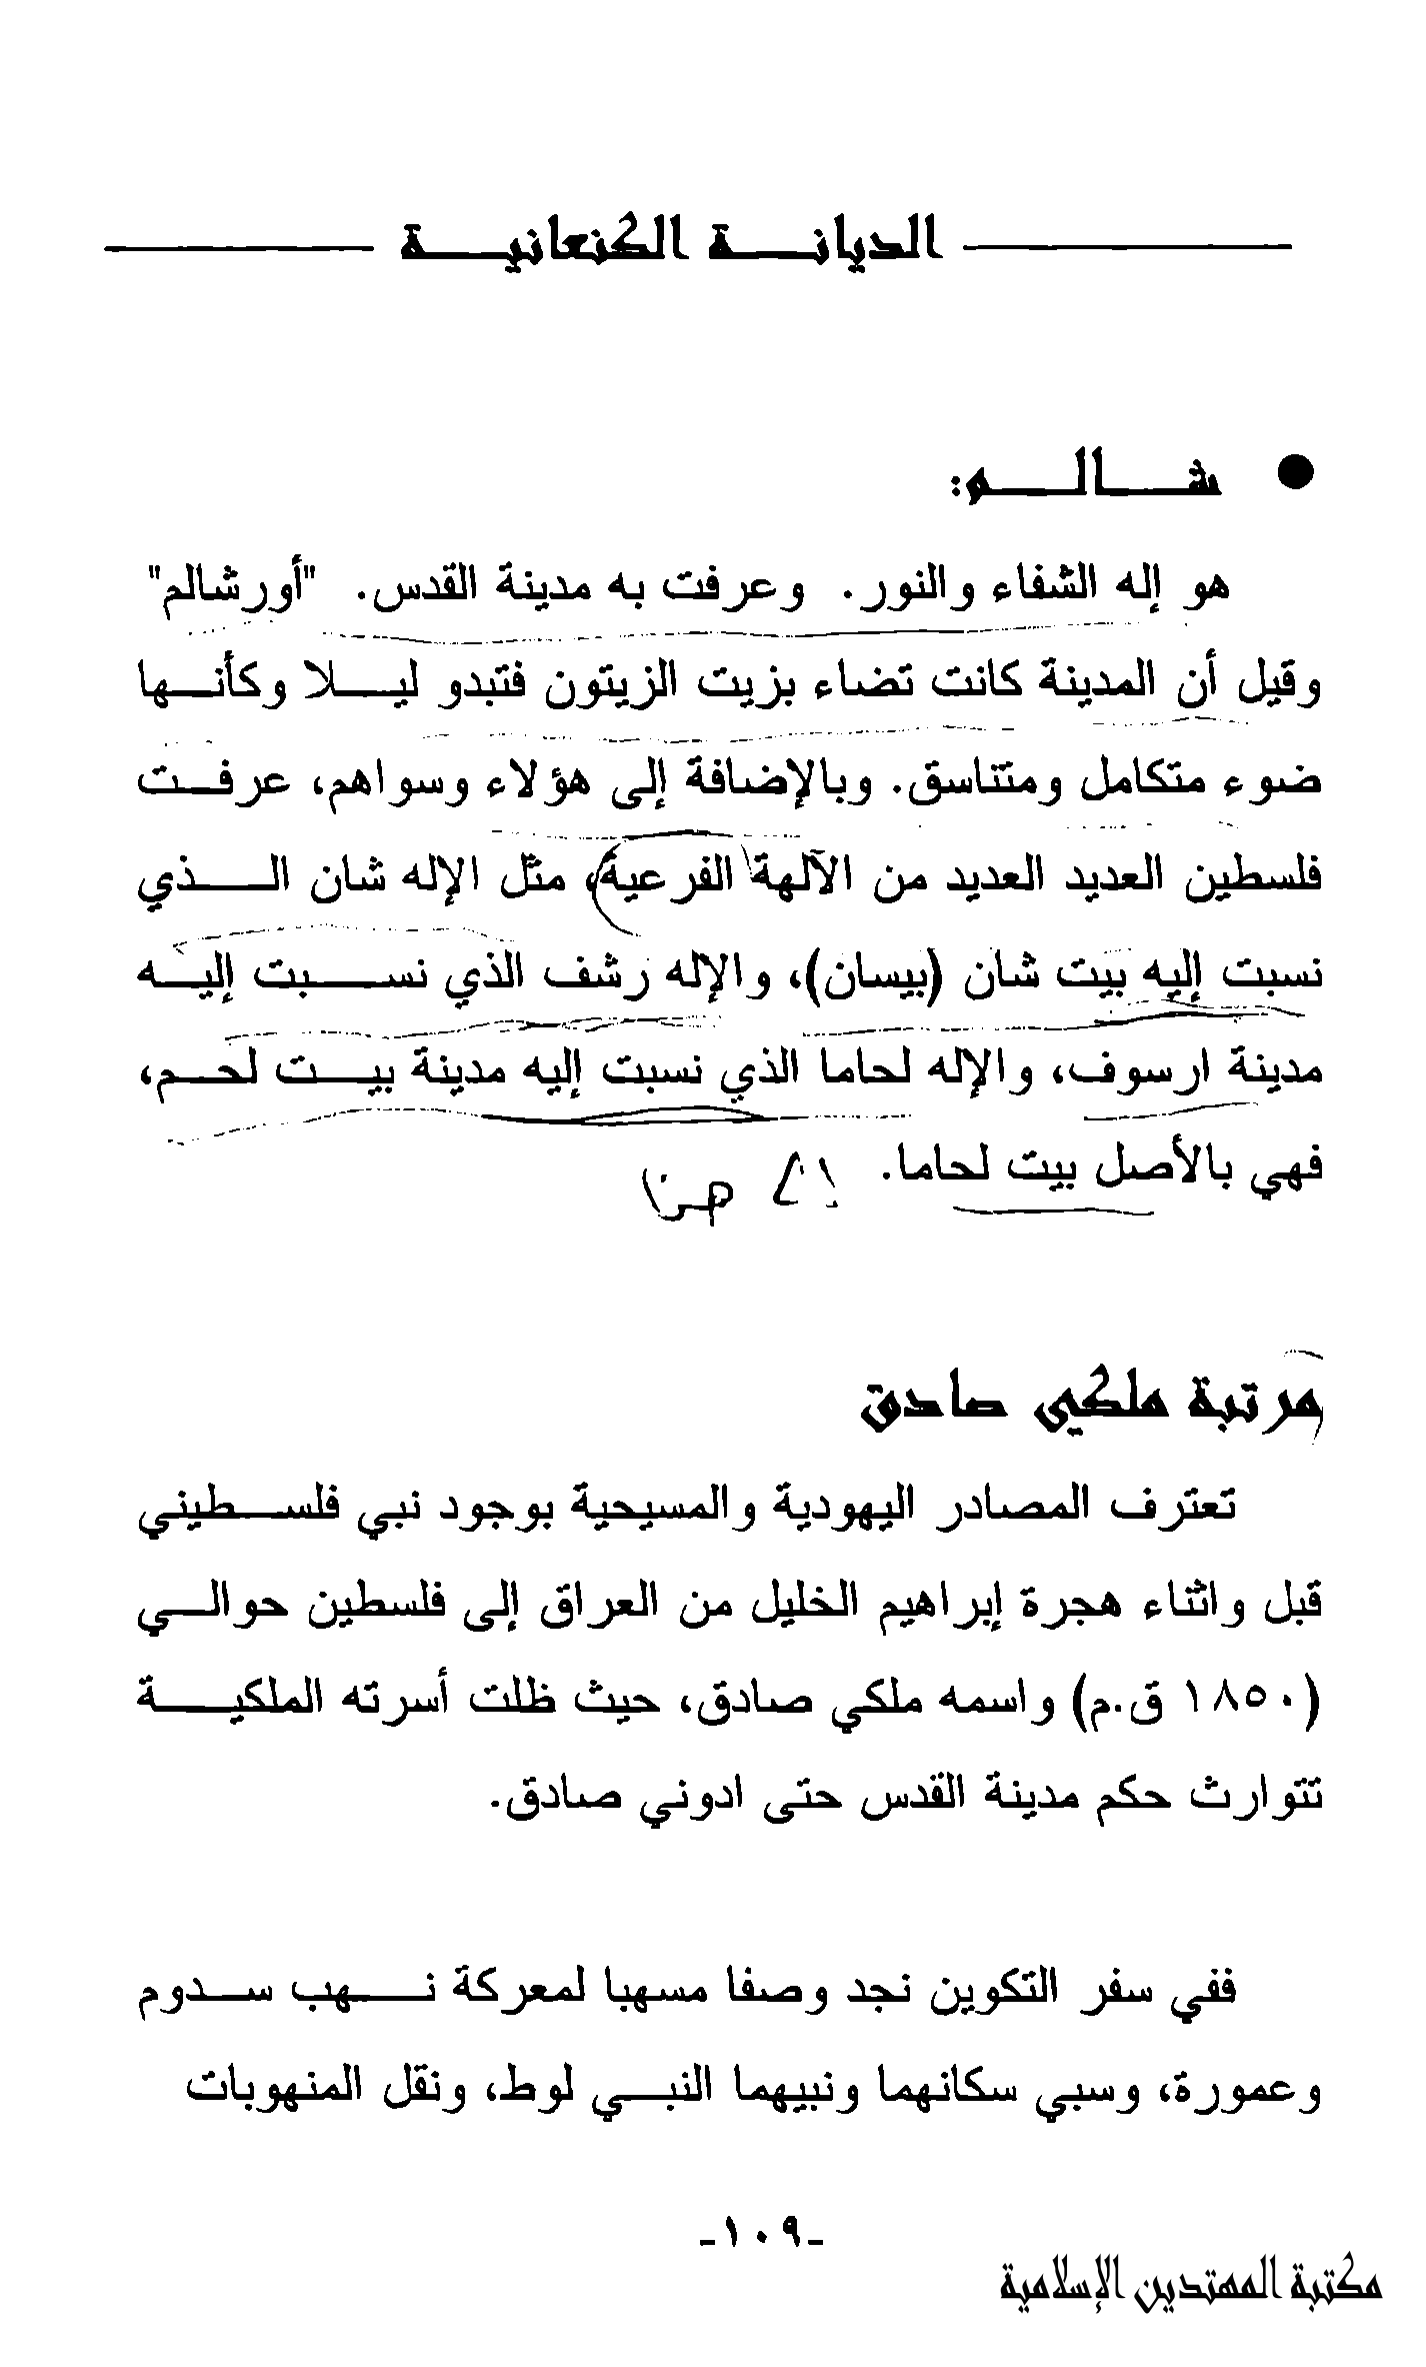 الديانة الكنعانية
● شالم:
هو إله الشفاء والنور. وعرفت به مدينة القدس. "أورشالم"
وقيل أن المدينة كانت تضاء بزيت الزيتون فتبدو ليلا وكأنها
ضوء متكامل ومتناسق. وبالإضافة إلى هؤلاء وسواهم، عرفت
فلسطين العديد العديد من الآلهة الفرعية، مثل الإله شان الذي
نسبت إليه بيت شان (بيسان)، والإله رشف الذي نسبت إليه
مدينة ارسوف، والإله لحاما الذي نسبت إليه مدينة بيت لحم،
فهي بالأصل بيت لحاما.
مرتبة ملكي صادق
تعترف المصادر اليهودية والمسيحية بوجود نبي فلسطيني
قبل واثناء هجرة إبراهيم الخليل من العراق إلى فلسطين حوالي
(١٨٥٠ ق.م) واسمه ملكي صادق، حيث ظلت أسرته الملكية
تتوارث حكم مدينة القدس حتى ادوني صادق.
ففي سفر التكوين نجد وصفا مسهبا لمعركة نهب سدوم
وعمورة، وسبي سكانهما ونبيهما النبي لوط، ونقل المنهوبات
-١٠٩-
مكتبة المهتدين الإسلامية